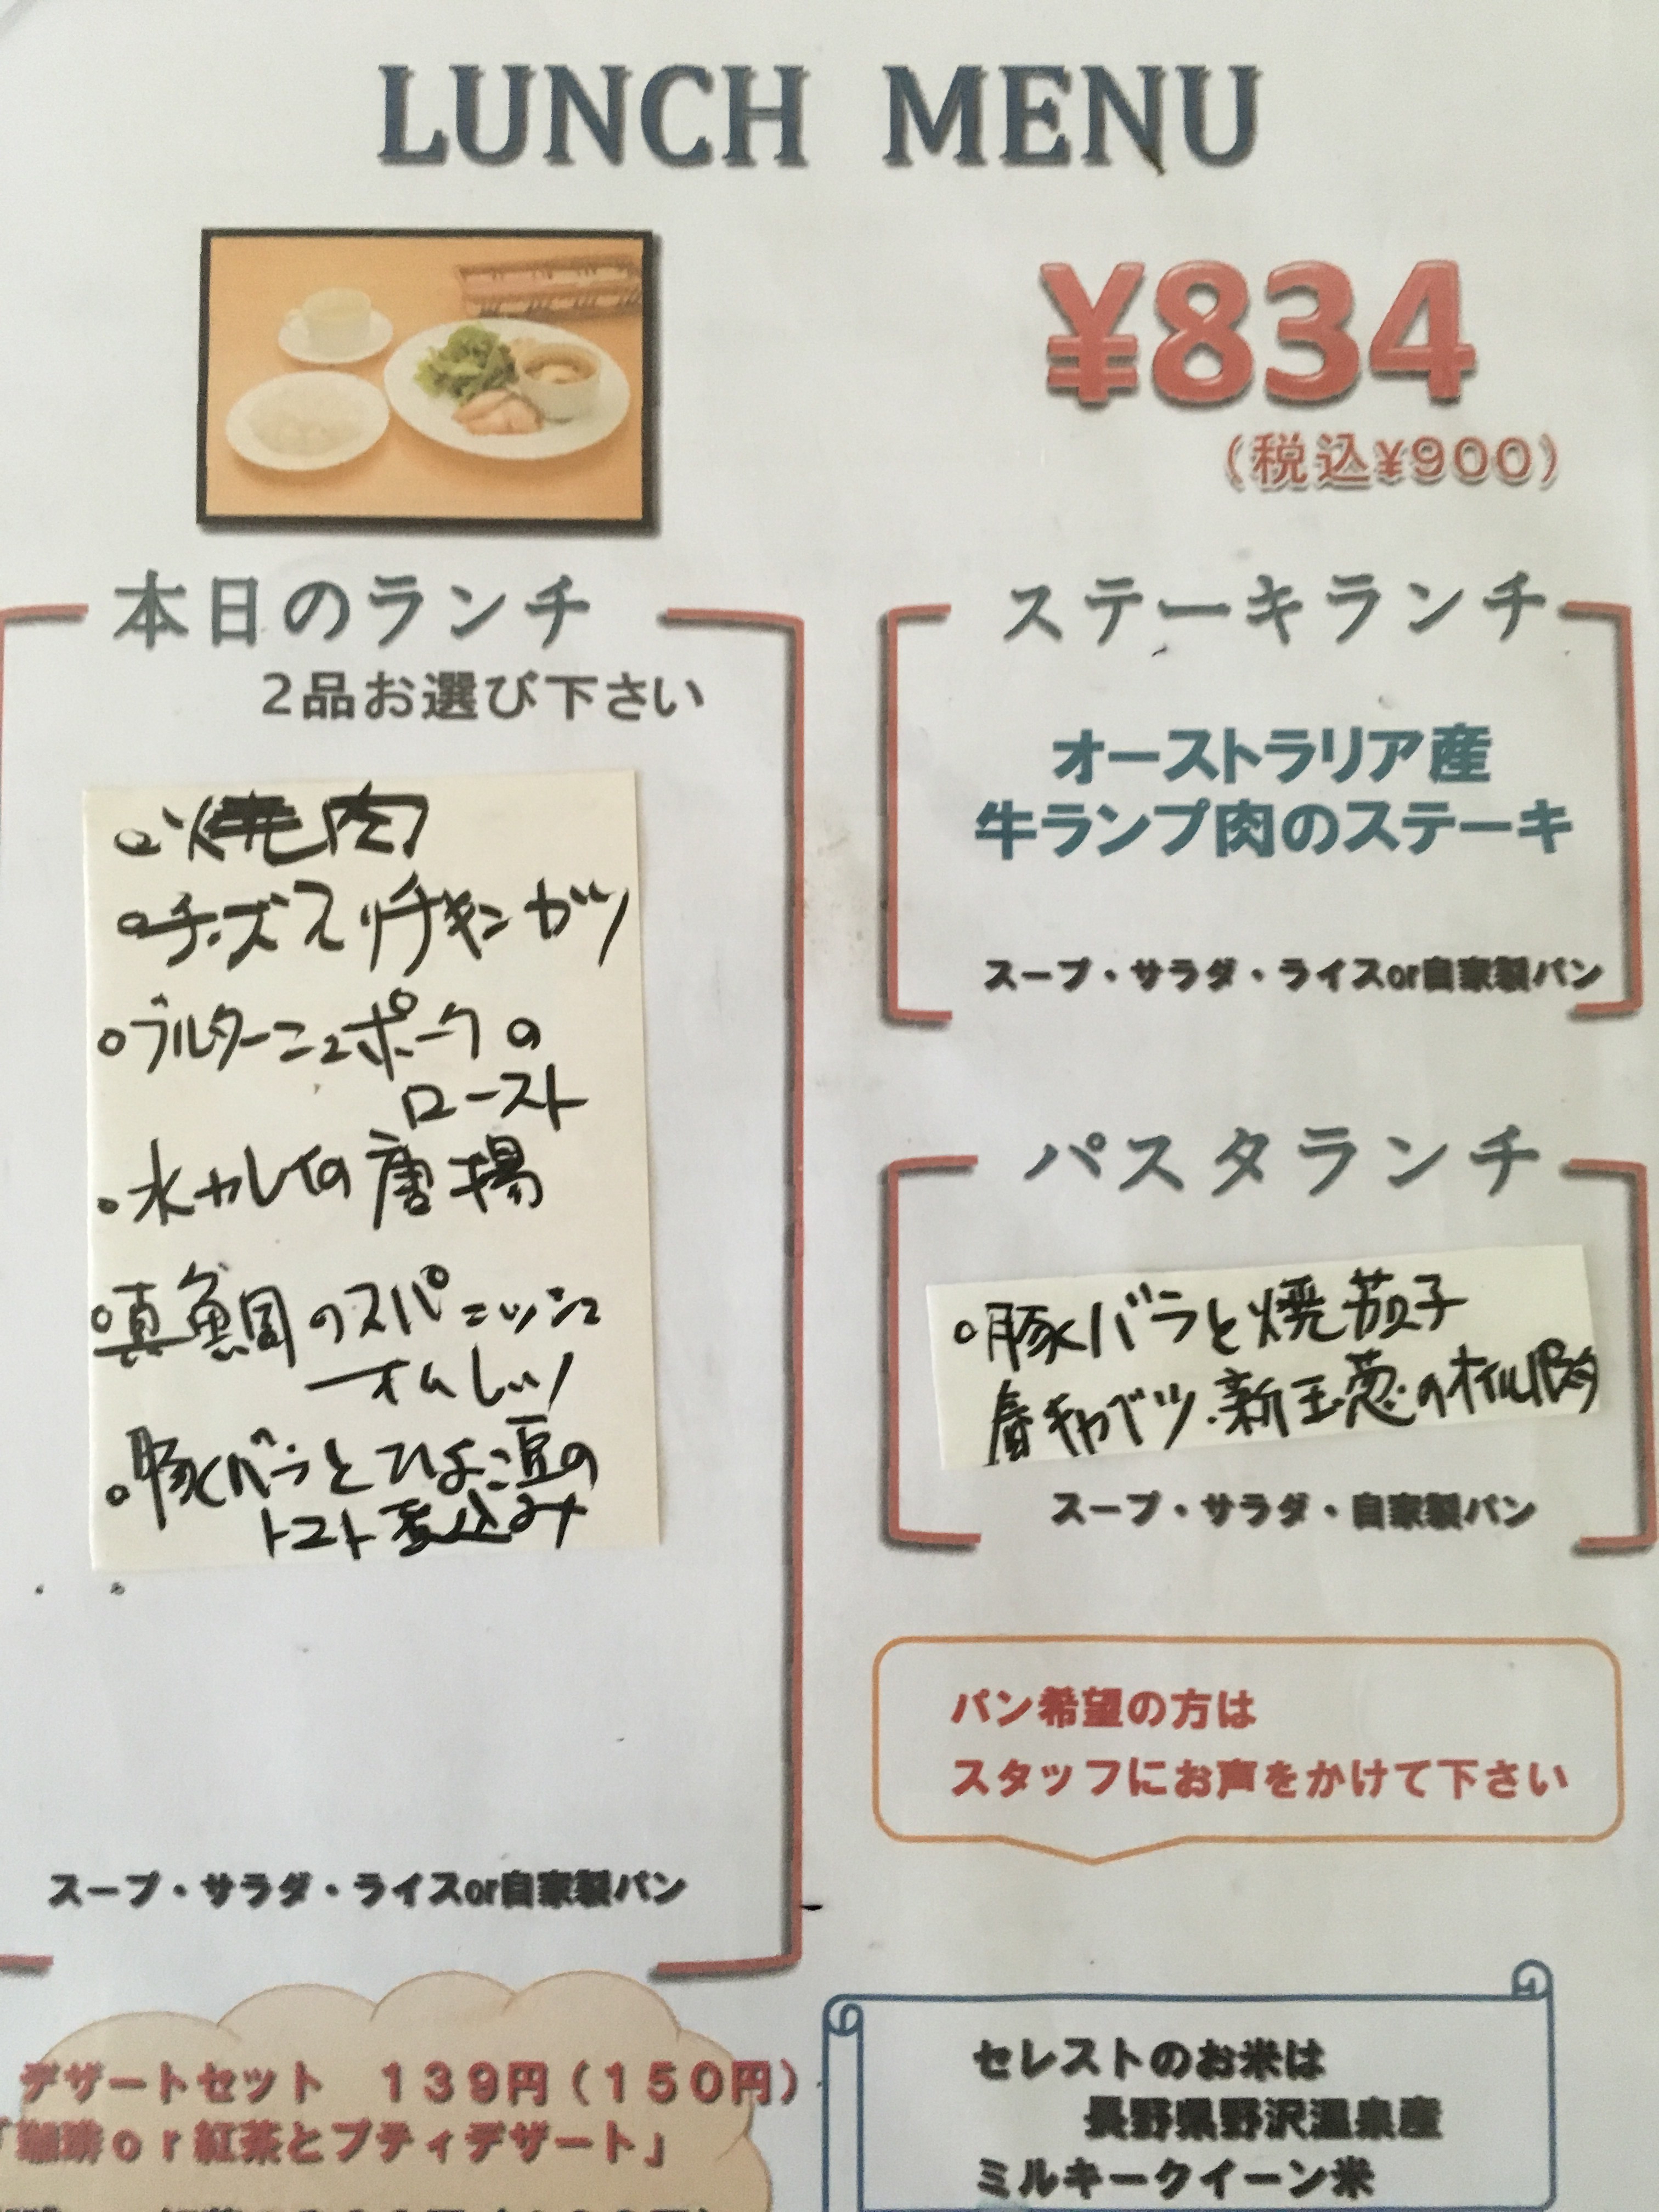 LUNCH MENU
¥834
(税込¥900)
本日のランチ
2品お選び下さい
○焼肉
○チーズ入りチキンカツ
○ブルターニュポークの
ロースト
○水カレイの唐揚
○真鯛のスパニッシュ
オムレツ
○豚バラとひよこ豆の
トマト煮込み
スープ・サラダ・ライスor自家製パン
ステーキランチ
オーストラリア産
牛ランプ肉のステーキ
スープ・サラダ・ライスor自家製パン
パスタランチ
○豚バラと焼茄子
春キャベツ、新玉葱のオイル
スープ・サラダ・自家製パン
パン希望の方は
スタッフにお声をかけて下さい
デザートセット 139円(150円)
「珈琲or紅茶とプティデザート」
セレストのお米は
長野県野沢温泉産
ミルキークイーン米